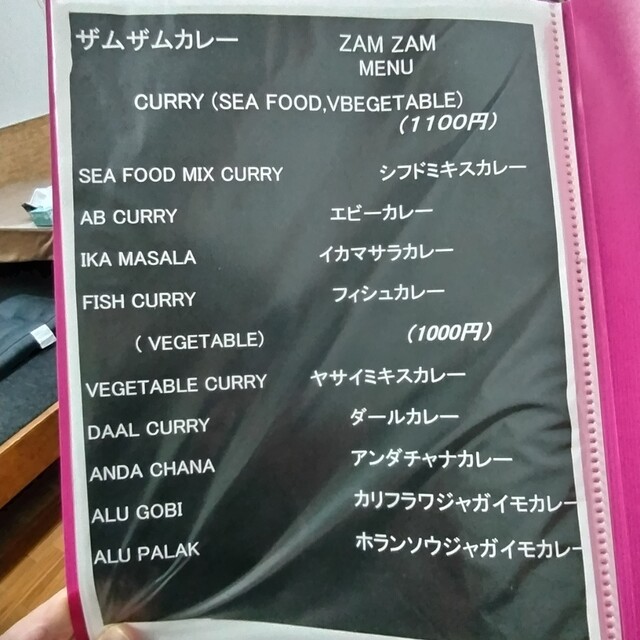 ザムザムカレー ZAM ZAM
MENU
CURRY (SEA FOOD,VBEGETABLE)
(1100円)
SEA FOOD MIX CURRY シフドミキスカレー
AB CURRY エビーカレー
IKA MASALA イカマサラカレー
FISH CURRY フィシュカレー
( VEGETABLE) (1000円)
VEGETABLE CURRY ヤサイミキスカレー
DAAL CURRY ダールカレー
ANDA CHANA アンダチャナカレー
ALU GOBI カリフラワジャガイモカレー
ALU PALAK ホランソウジャガイモカレー